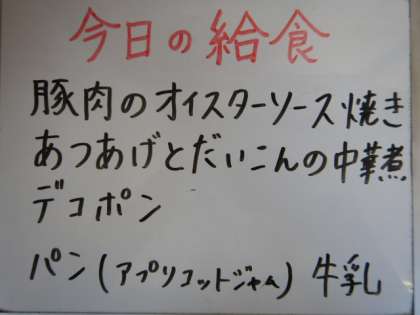 今日の給食
豚肉のオイスターソース焼き
あつあげとだいこんの中華煮
デコポン
パン(アプリコットジャム) 牛乳